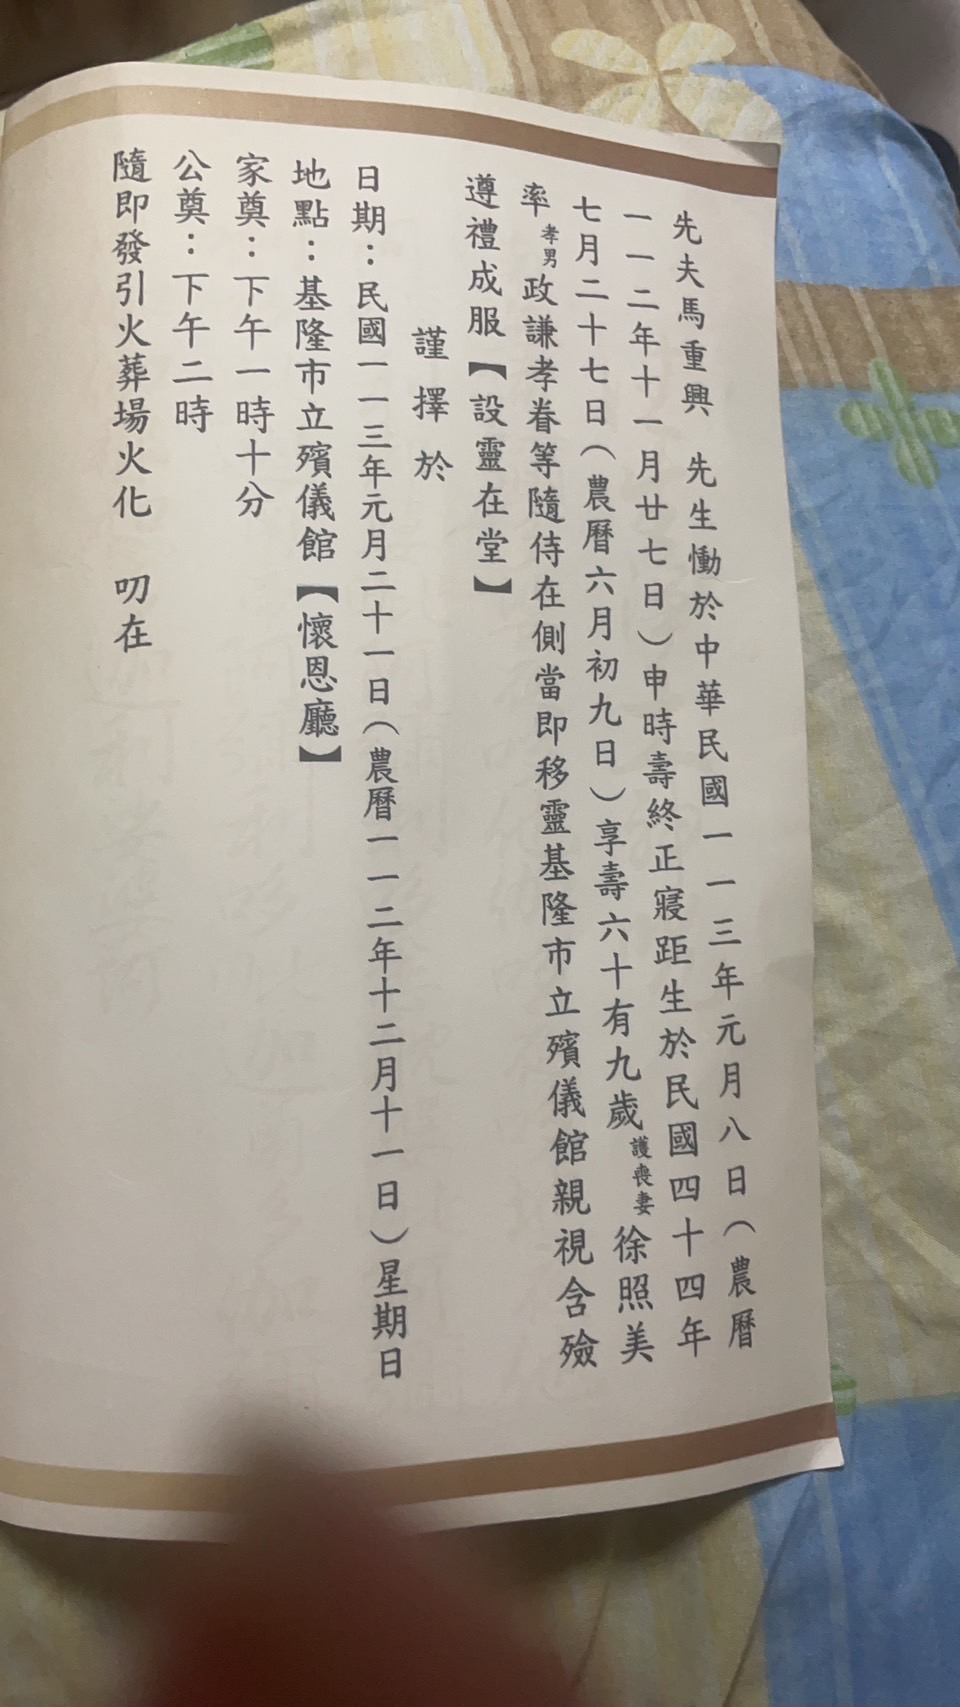 先夫馬重興 先生慟於中華民國一一三年元月八日(農曆
一一二年十一月廿七日)申時壽終正寢距生於民國四十四年
七月二十七日(農曆六月初九日)享壽六十有九歲護喪妻徐照美
率孝男政謙孝眷等隨侍在側當即移靈基隆市立殯儀館親視含殮
遵禮成服【設靈在堂】
謹擇於
日期：民國一一三年元月二十一日(農曆一一二年十二月十一日)星期日
地點：基隆市立殯儀館【懷恩廳】
家奠：下午一時十分
公奠：下午二時
隨即發引火葬場火化 叨在